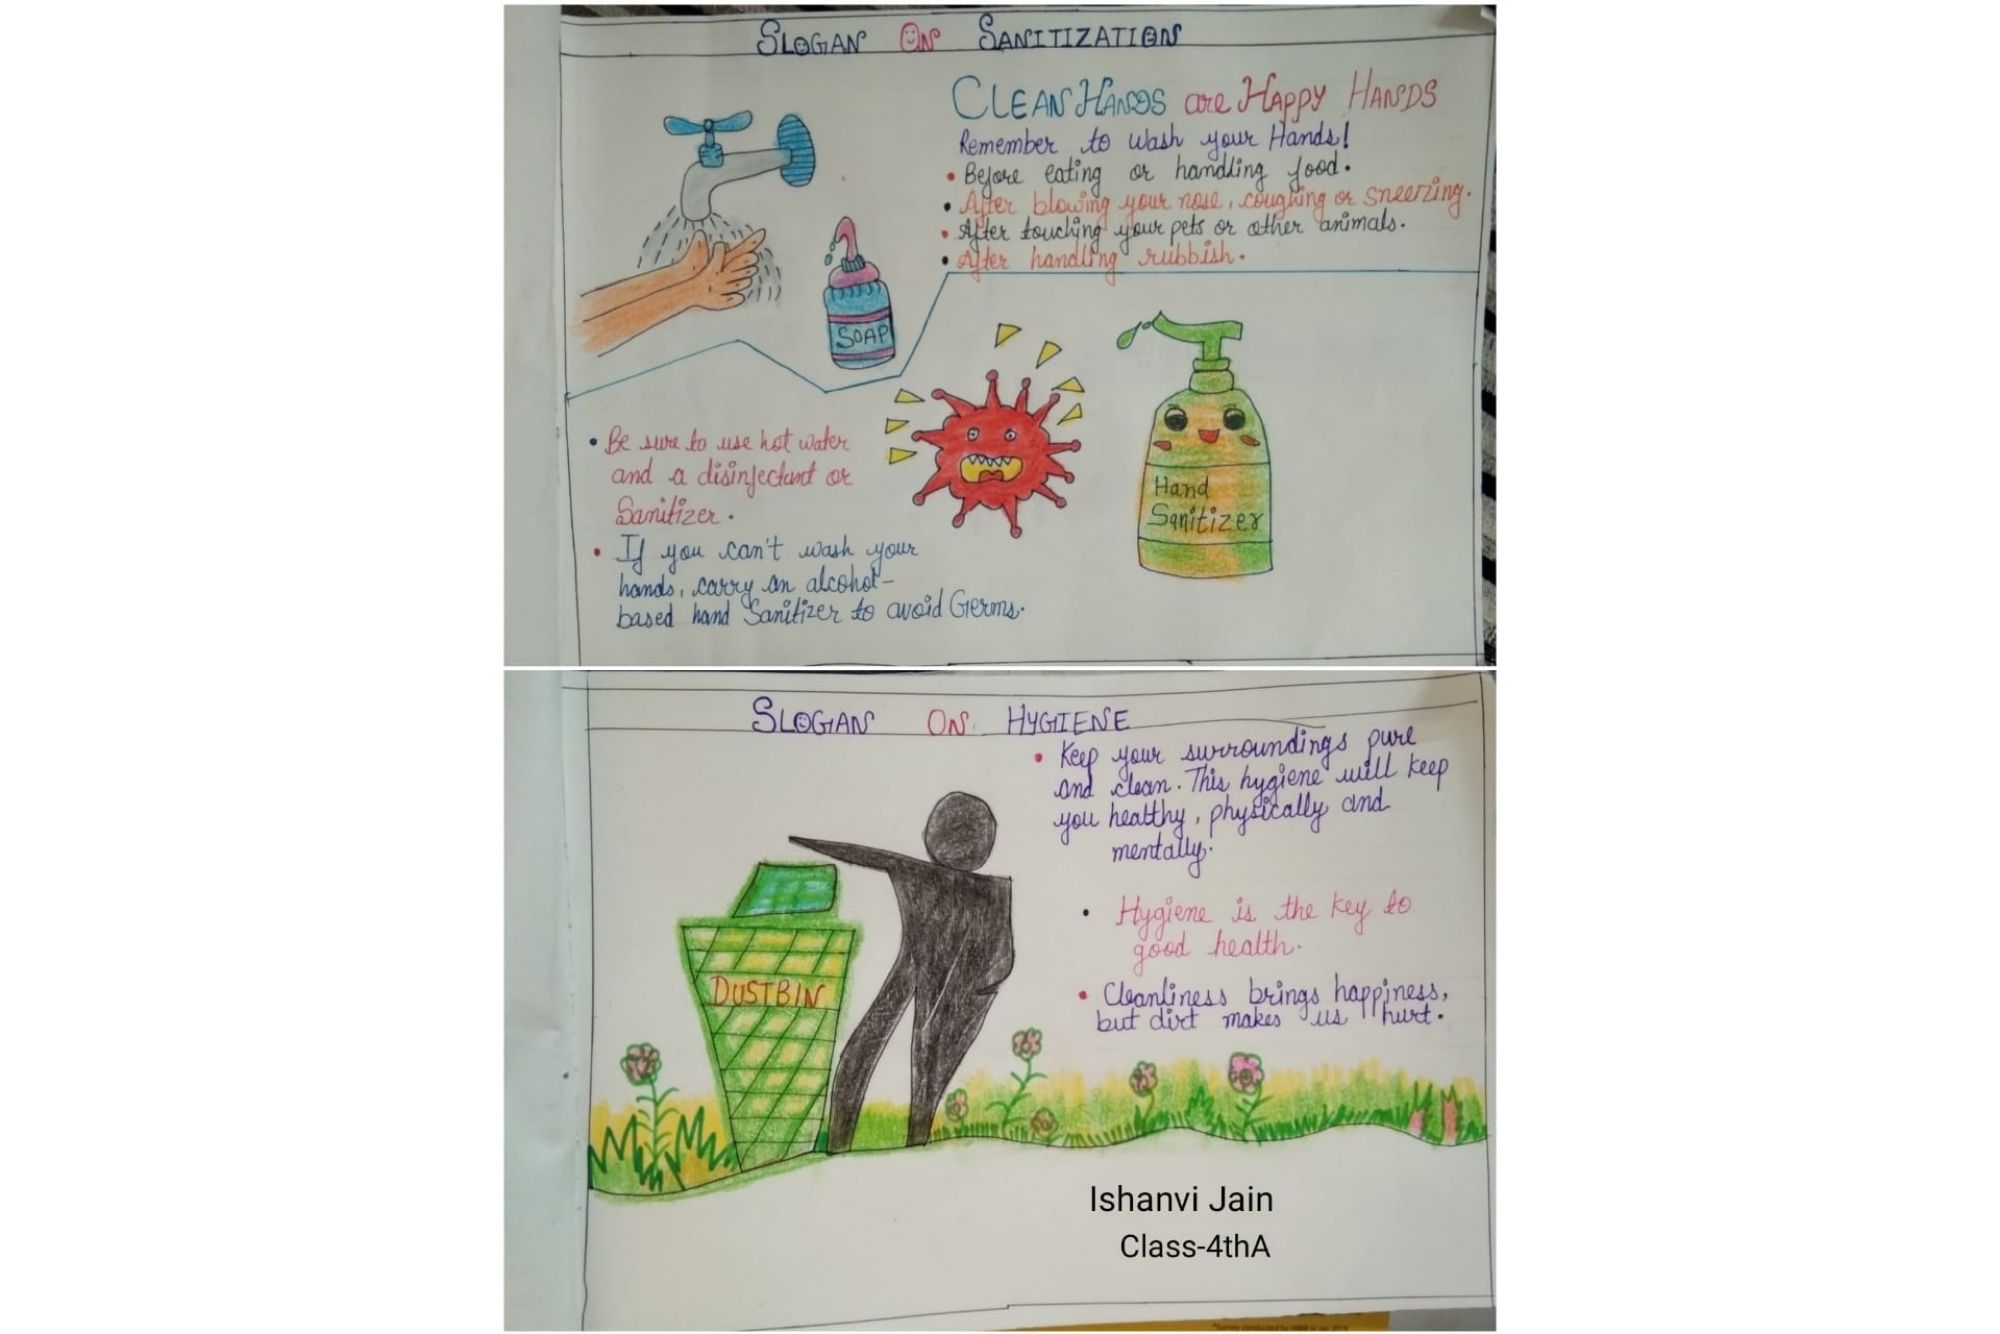 SLOGAN ON SANITIZATION
CLEAN HANDS are HAPPY HANDS
Remember to wash your Hands!
• Before eating or handling food.
• After blowing your nose, coughing or sneezing.
• After touching your pets or other animals.
• After handling rubbish.
SOAP
• Be sure to use hot water
and a disinfectant or
Sanitizer.
• If you can't wash your
hands, carry an alcohol-
based hand Sanitizer to avoid Germs.
Hand
Sanitizer
SLOGAN ON HYGIENE
• Keep your surroundings pure
and clean. This hygiene will keep
you healthy, physically and
mentally.
• Hygiene is the key to
good health.
• Cleanliness brings happiness,
but dirt makes us hurt.
DUSTBIN
Ishanvi Jain
Class-4thA